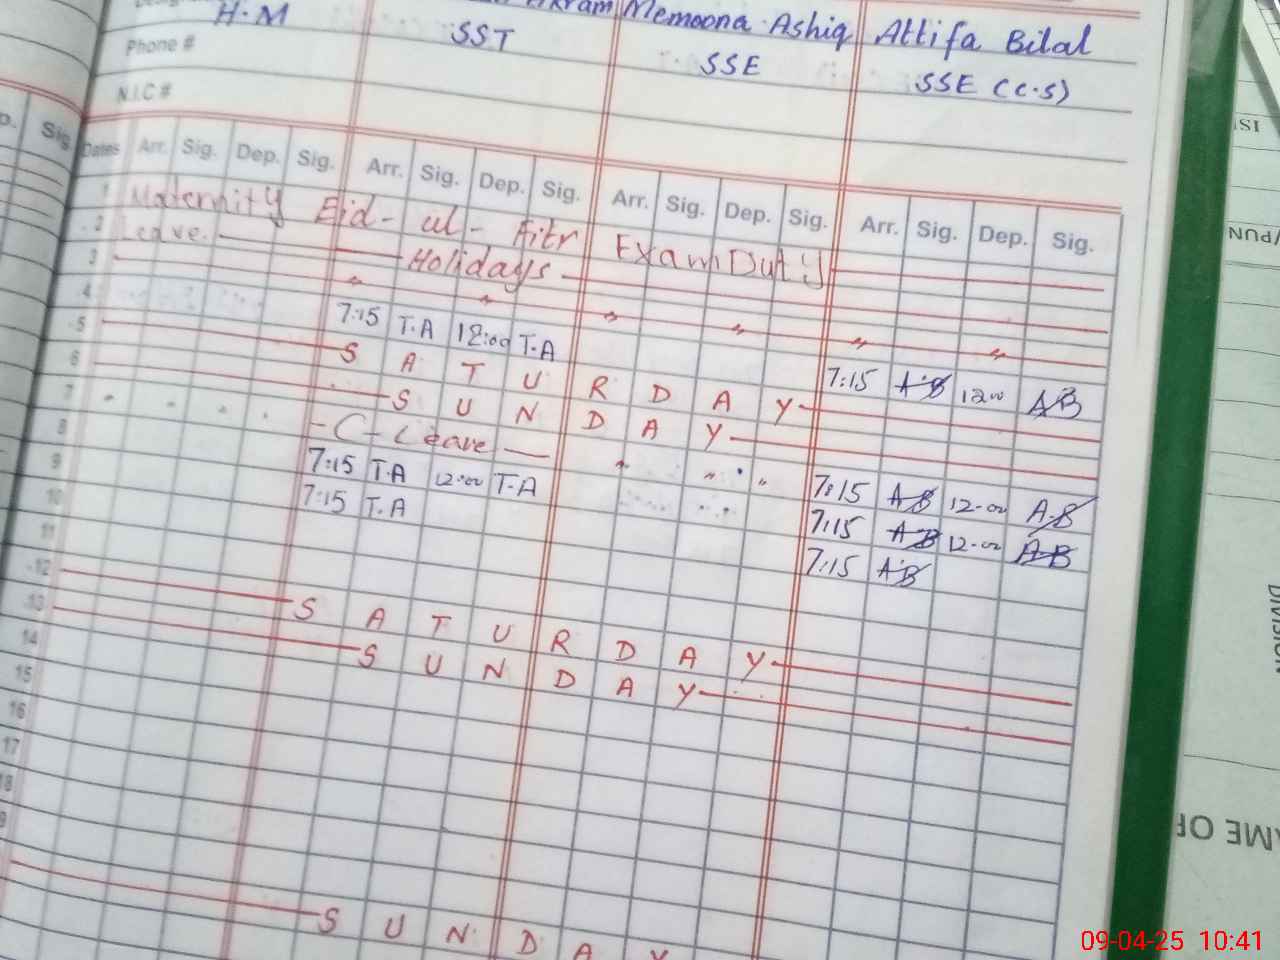 H.M
SST
Memoona Ashiq
SSE
Attifa Bilal
SSE (C.S)
Phone #
N.I.C #
Sig.
Dates Arr. Sig. Dep. Sig. Arr. Sig. Dep. Sig. Arr. Sig. Dep. Sig. Arr. Sig. Dep. Sig.
1 Maternity Eid - ul - Fitr
2 Leave. Holidays Exam Duty
3 " " " " " "
4 7:15 T.A 12:00 T.A 7:15 A.B 12:00 A.B
5 S A T U R D A Y
6 S U N D A Y
7 - C - Leave - " " " 7:15 A.B 12-00 A.B
8 7:15 T.A 12:00 T.A 7:15 A.B 12-00 A.B
9 7:15 T.A 7:15 A.B
10
11
12 S A T U R D A Y
13 S U N D A Y
14
15
16
17
18
S U N D A Y
ISI
/PUN
DIVISION
AME OF
09-04-25 10:41